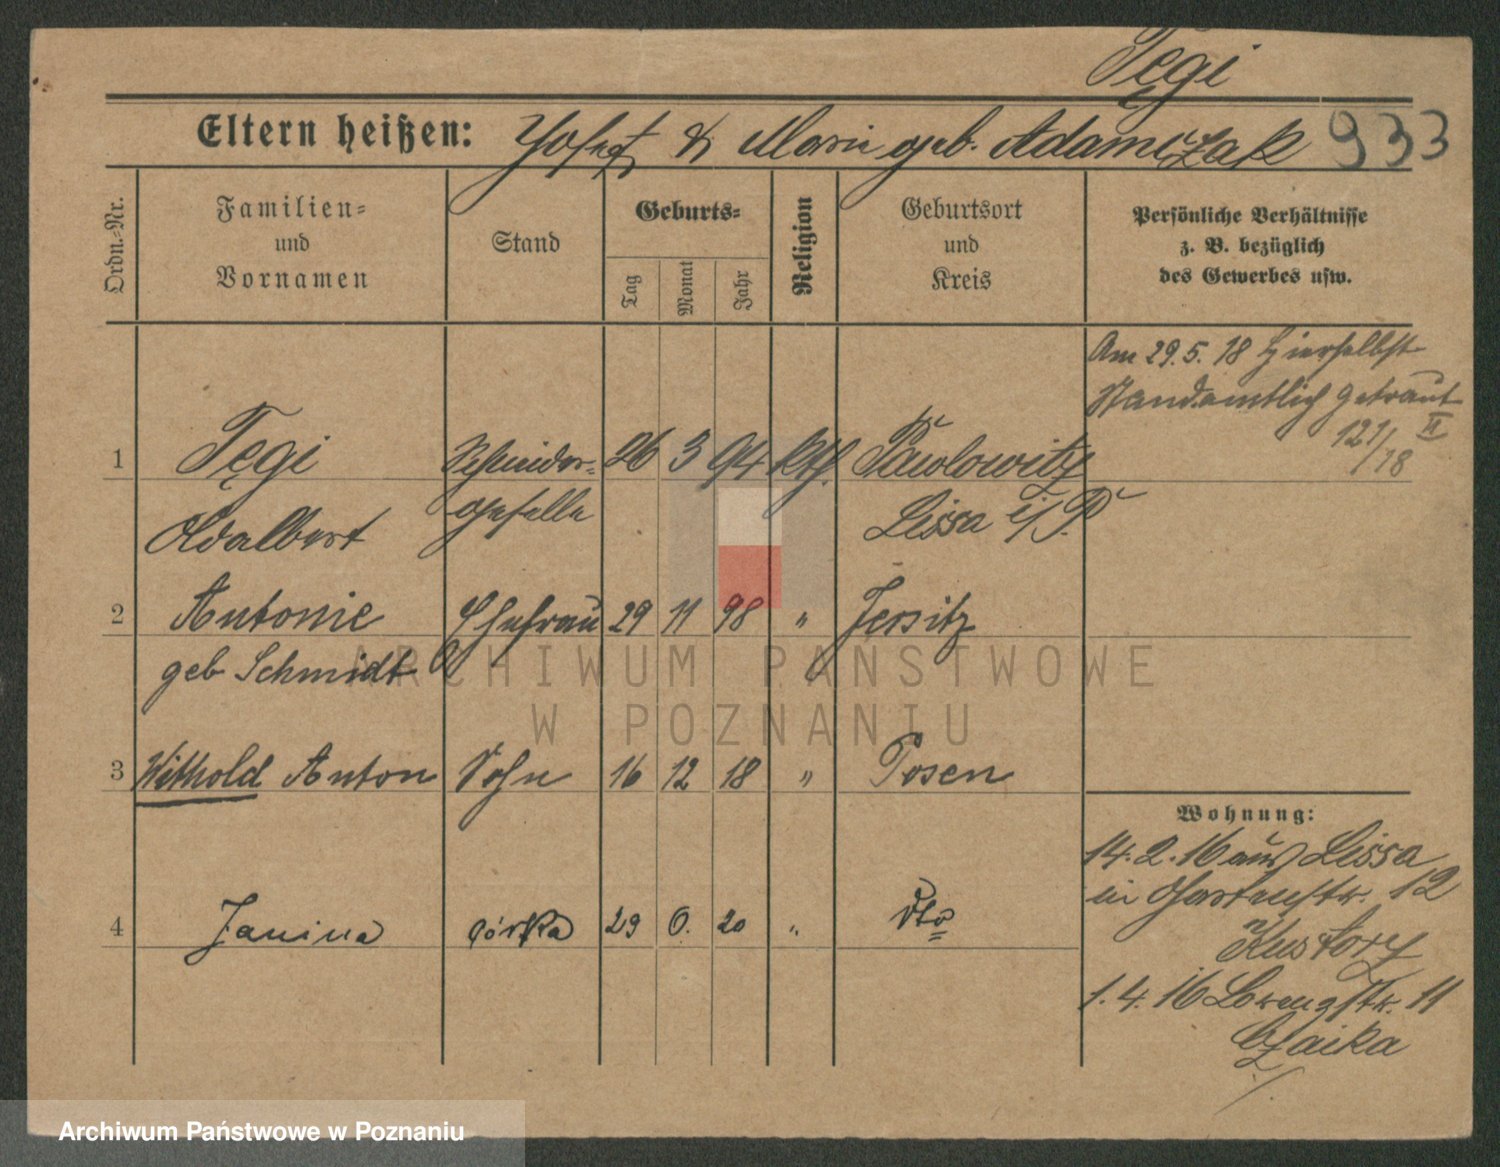 Tęgi
Eltern heißen: Josef & Marie geb. Adamczak 933
Ordn.-Nr.
Familien-
und
Vornamen
Stand
Geburts-
Tag
Monat
Jahr
Religion
Geburtsort
und
Kreis
Persönliche Verhältnisse
z. B. bezüglich
des Gewerbes usw.
Am 29.5.18 hierselbst
standamtlich getraut
121/18 II
1 Tęgi Schneider- 26 3 94 kth. Pawlowitz
Adalbert geselle Lissa i/P.
2 Antonie Ehefrau 29 11 98 " Jersitz
geb Schmidt
ARCHIWUM PAŃSTWOWE
W POZNANIU
3 Withold Anton Sohn 16 12 18 " Posen
Wohnung:
14.2.16 aus Lissa
in Gartenstr. 12
4 Janina córka 29 6. 20 " dto
1.4.16 Lorenzstr. 11
Czaika
Archiwum Państwowe w Poznaniu